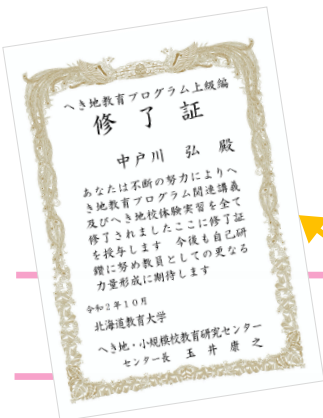 へき地教育プログラム上級編
修了証
中戸川 弘 殿
あなたは不断の努力によりへ
き地教育プログラム関連講義
及びへき地校体験実習を全て
修了されましたここに修了証
を授与します 今後も自己研
鑽に努め教員としての更なる
力量形成に期待します
令和2年10月
北海道教育大学
へき地・小規模校教育研究センター
センター長 玉井康之